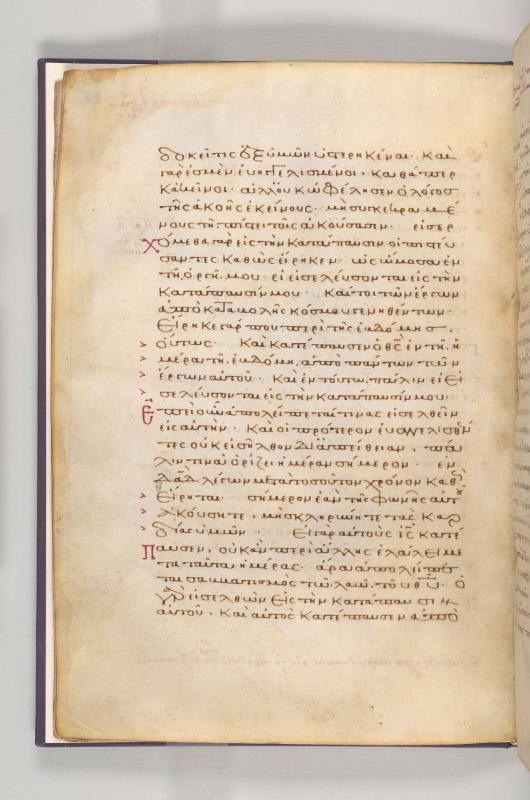 δοκεῖ τις ἐξ ὑμῶν ὑστερηκέναι· Καὶ
γάρ ἐσμεν εὐηγγελισμένοι· καθάπερ
κἀκεῖνοι· ἀλλ' οὐκ ὠφέλησεν ὁ λόγος
τῆς ἀκοῆς ἐκείνους· μὴ συγκεκραμέ
νους τῇ πίστει τοῖς ἀκούσασιν· εἰσερ
χόμεθα γὰρ εἰς τὴν κατάπαυσιν οἱ πιστεύ
σαντες καθὼς εἴρηκεν· ὡς ὤμοσα ἐν
τῇ ὀργῇ μου· εἰ εἰσελεύσονται εἰς τὴν
κατάπαυσίν μου· καίτοι τῶν ἔργων
ἀπὸ καταβολῆς κόσμου γενηθέντων·
Εἴρηκε γάρ που περὶ τῆς ἑβδόμης·
οὕτως· Καὶ κατέπαυσεν ὁ θς ἐν τῇ ἡ
μέρα τῇ ἑβδόμῃ, ἀπὸ πάντων τῶν
ἔργων αὐτοῦ· Καὶ ἐν τούτω πάλιν· εἰ εἰ
σελεύσονται εἰς τὴν κατάπαυσίν μου·
Ἐπεὶ οὖν ἀπολείπεται τινὰς εἰσελθεῖν
εἰς αὐτήν· Καὶ οἱ πρότερον εὐαγγελισθέν
τες οὐκ εἰσῆλθον δι' ἀπείθειαν, πά
λιν τινὰ ὁρίζει ἡμέραν σήμερον· ἐν
δαδ λέγων μετὰ τοσοῦτον χρόνον καθὼς
Εἴρηται· σήμερον ἐὰν τῆς φωνῆς αὐτοῦ
ἀκούσητε, μὴ σκληρύνητε τὰς καρ
δίας ὑμῶν· Εἰ γὰρ αὐτοὺς ις κατέ
Παυσεν, οὐκ ἂν περὶ ἄλλης ἐλάλει με
τὰ ταῦτα ἡμέρας· ἄρα ἀπολείπε
ται σαββατισμὸς τῶ λαῶ τοῦ θυ· Ὁ
γὰρ εἰσελθὼν εἰς τὴν κατάπαυσιν
αὐτοῦ· Καὶ αὐτὸς κατέπαυσεν ἀπὸ